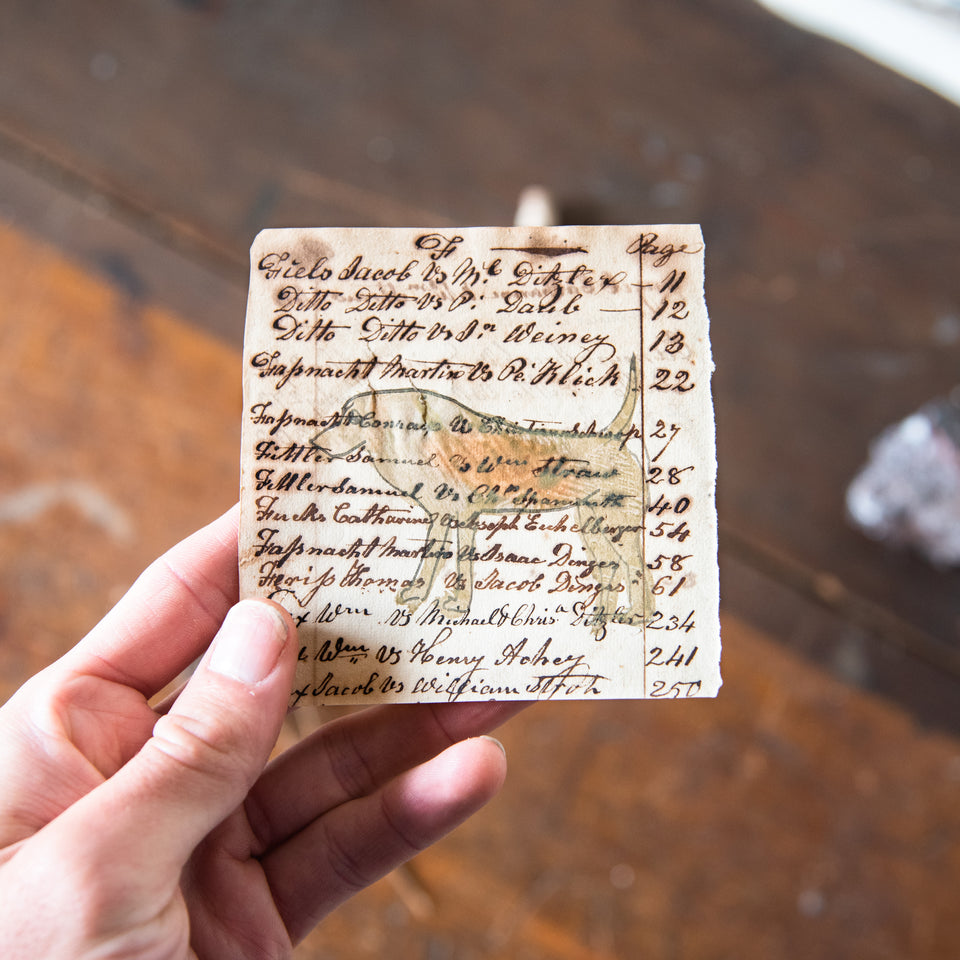 F Page
Fiels Jacob Vs Ml Ditzler 11
Ditto Ditto Vs P. Daub 12
Ditto Ditto Vs Jn Weiney 13
Faßnacht Martin Vs Pe. Klick 22
Faßnacht Conrad Vs 27
Fittler Samuel Vs Wm Straw 28
Fittler Samuel Vs 40
Fucks Catharine Joseph Euchelberger 54
Faßnacht Martin Vs Isaac Dinges 58
Feriß Thomas Vs Jacob Dinges 61
Wm Vs Michael & Chrisa Ditzler 234
Wm Vs Henry Achey 241
Jacob Vs William Stroh 250